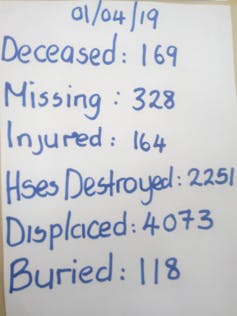 01/04/19
Deceased: 169
Missing: 328
Injured: 164
Hses Destroyed: 2251
Displaced: 4073
Buried: 118